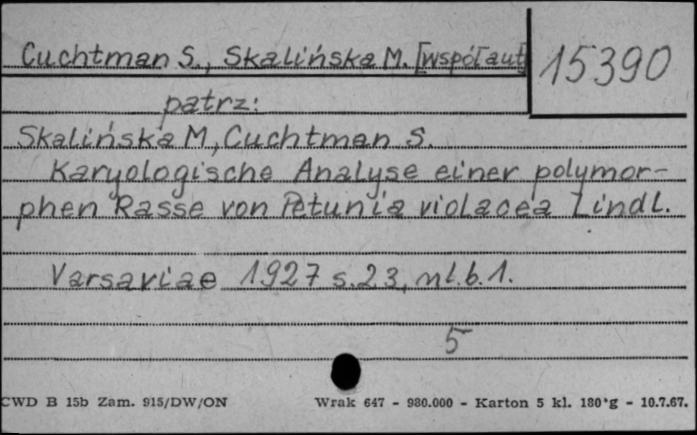 Cuchtman S., Skalińska M. [współaut]
15390
patrz:
Skalińska M, Cuchtman S.
Karyologische Analyse einer polymor-
phen Rasse von Petunia violacea Lindl.
Varsaviae 1927 s.23, nl.b.1.
5
CWD B 15b Zam. 915/DW/ON Wrak 647 - 980.000 - Karton 5 kl. 180*g - 10.7.67.